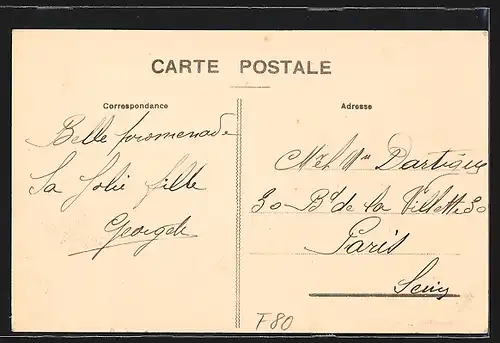 CARTE POSTALE
Correspondance
Adresse
Belle promenade
La Jolie fille
Georgette
Dartigue
30 Bd de la Villette 30
Paris
Seine
F80